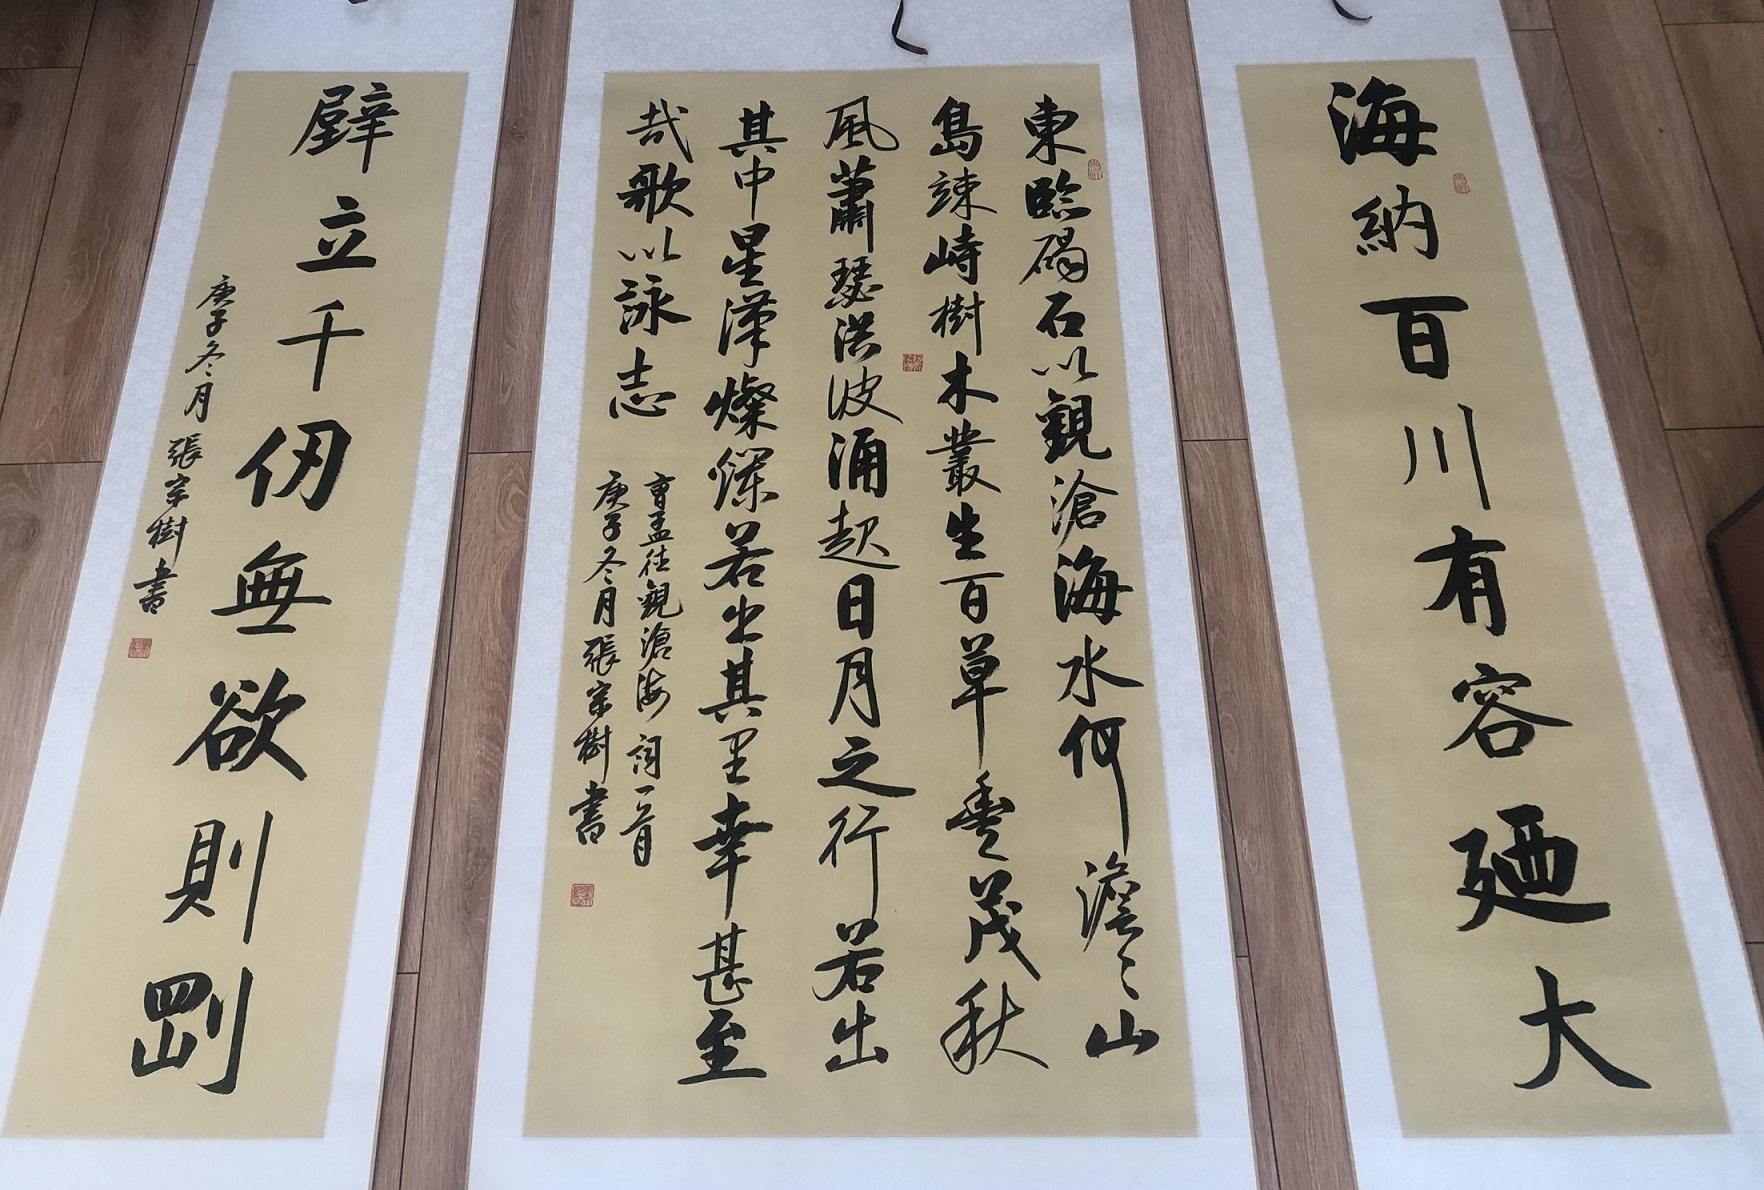 海納百川有容廼大
東臨碣石以觀滄海水何澹々山
島竦峙樹木叢生百草豐茂秋
風蕭瑟洪波涌起日月之行若出
其中星漢燦爛若出其里幸甚至
哉歌以詠志
曹孟德觀滄海詞一首
庚子冬月張宗樹書
壁立千仞無欲則剛
庚子冬月張宗樹書